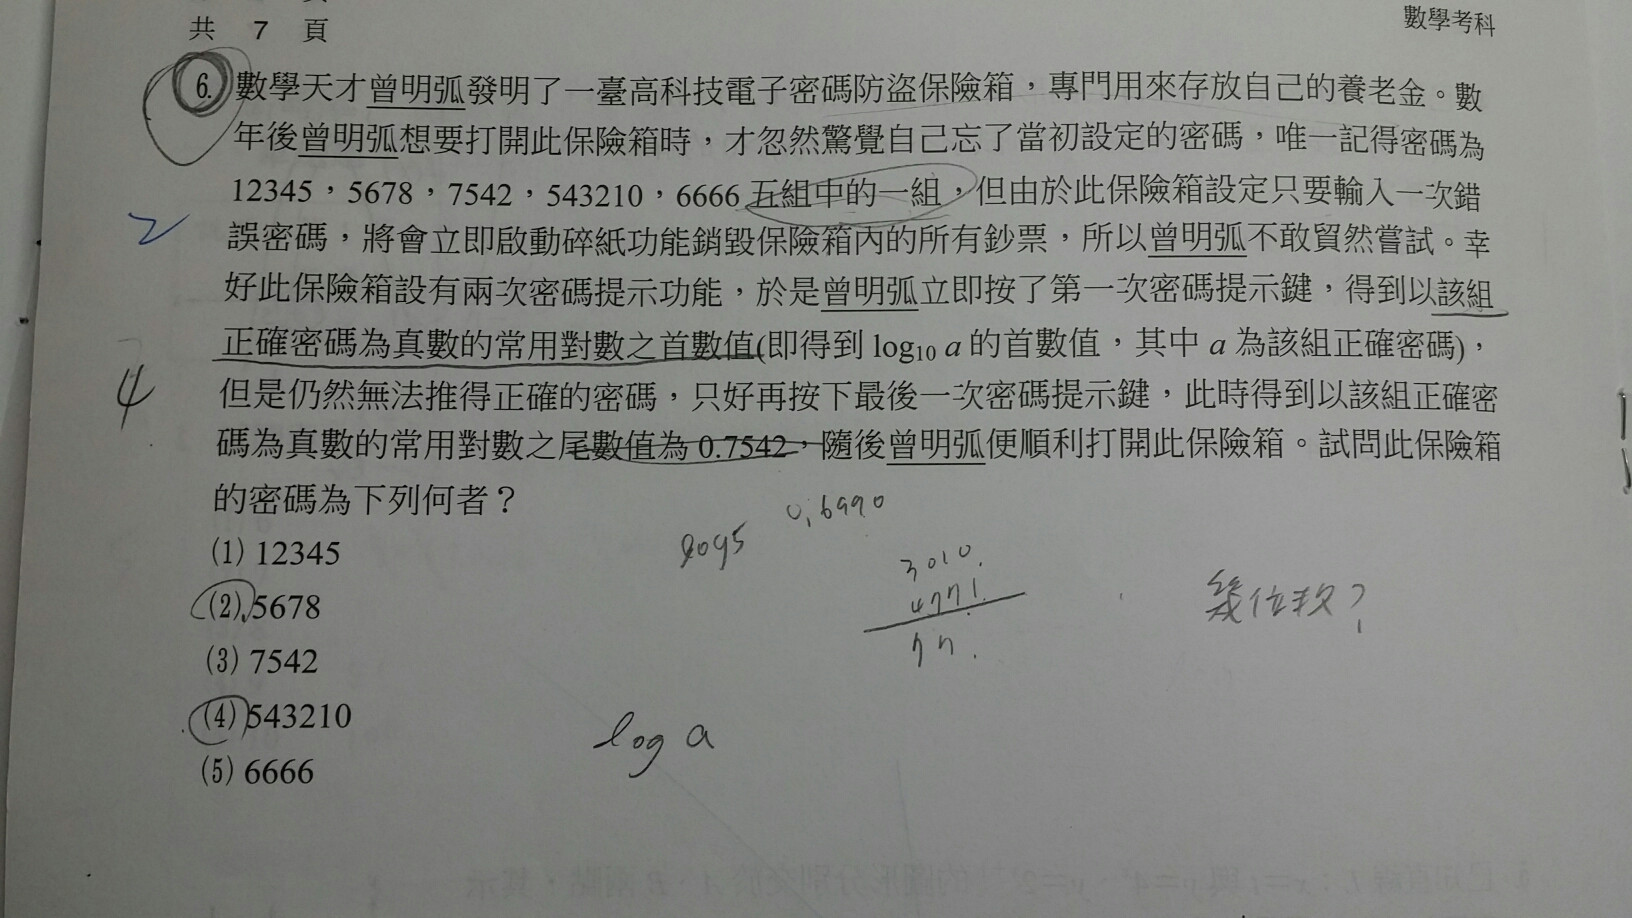 共 7 頁
數學考科
6. 數學天才曾明弧發明了一臺高科技電子密碼防盜保險箱，專門用來存放自己的養老金。數
年後曾明弧想要打開此保險箱時，才忽然驚覺自己忘了當初設定的密碼，唯一記得密碼為
12345，5678，7542，543210，6666 五組中的一組，但由於此保險箱設定只要輸入一次錯
2
誤密碼，將會立即啟動碎紙功能銷毀保險箱內的所有鈔票，所以曾明弧不敢貿然嘗試。幸
好此保險箱設有兩次密碼提示功能，於是曾明弧立即按了第一次密碼提示鍵，得到以該組
正確密碼為真數的常用對數之首數值(即得到 log₁₀ a 的首數值，其中 a 為該組正確密碼)，
4
但是仍然無法推得正確的密碼，只好再按下最後一次密碼提示鍵，此時得到以該組正確密
碼為真數的常用對數之尾數值為 0.7542，隨後曾明弧便順利打開此保險箱。試問此保險箱
的密碼為下列何者？
(1) 12345
(2) 5678
(3) 7542
(4) 543210
(5) 6666
log5
0.6990
3010
4771
77
幾位數？
log a